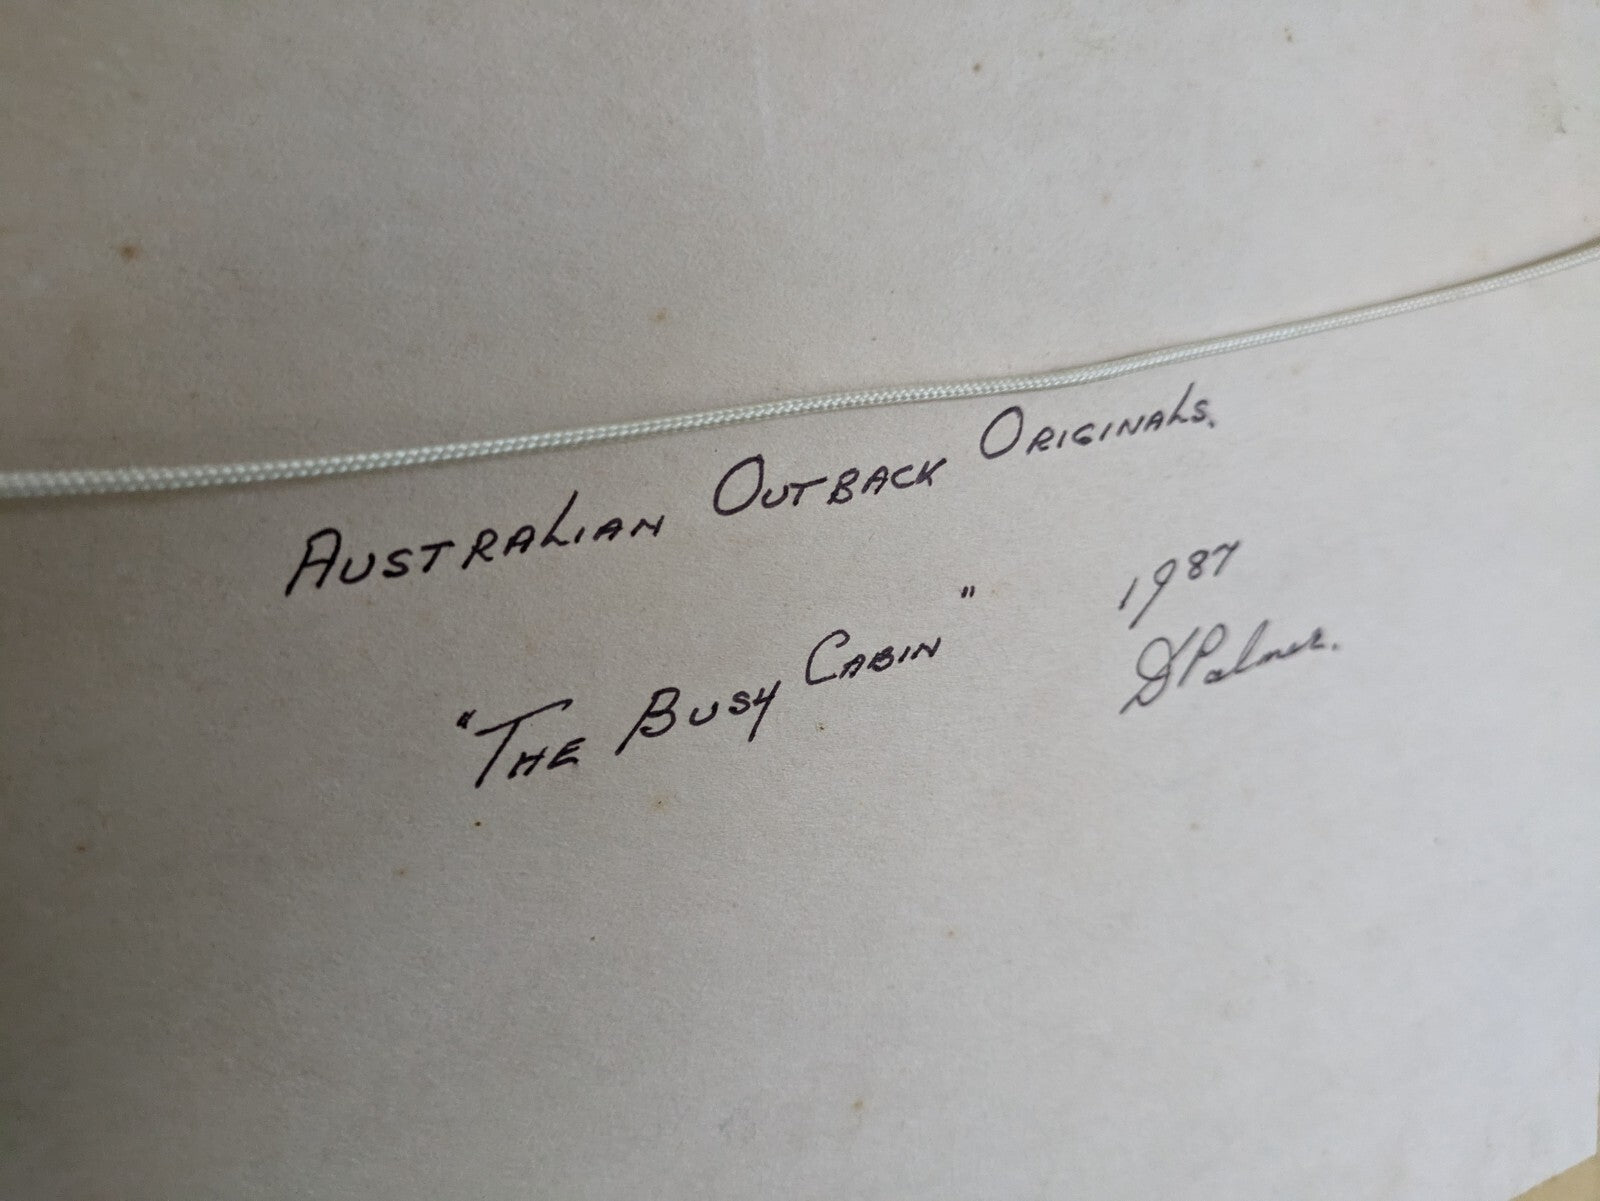 AUSTRALIAN OUTBACK ORIGINALS.
"THE BUSY CABIN"
1987
D Palmer.